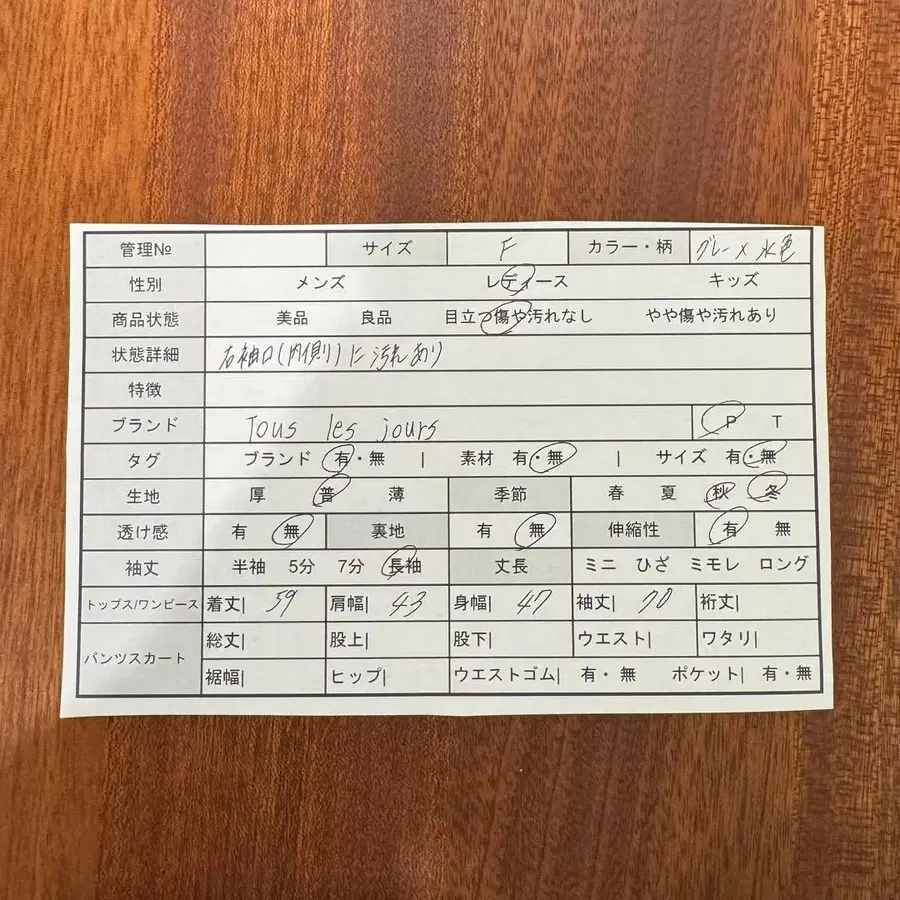 管理№ サイズ F カラー・柄 グレー×水色
性別 メンズ レディース キッズ
商品状態 美品 良品 目立つ傷や汚れなし やや傷や汚れあり
状態詳細 右袖口(内側)に汚れあり
特徴
ブランド Tous les jours P T
タグ ブランド 有・無 | 素材 有・無 | サイズ 有・無
生地 厚 普 薄 季節 春 夏 秋 冬
透け感 有 無 裏地 有 無 伸縮性 有 無
袖丈 半袖 5分 7分 長袖 丈長 ミニ ひざ ミモレ ロング
トップス/ワンピース 着丈| 59 肩幅| 43 身幅| 47 袖丈| 70 裄丈|
パンツスカート 総丈| 股上| 股下| ウエスト| ワタリ|
裾幅| ヒップ| ウエストゴム| 有・無 ポケット| 有・無